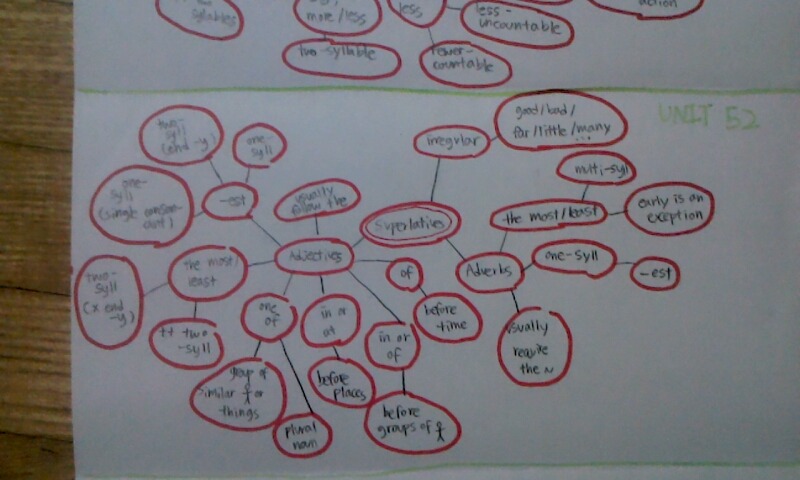 syllables
more/less
two-syllable
less
less-
uncountable
fewer-
countable
action
UNIT 52
Superlatives
irregular
good/bad/
far/little/many
...
Adverbs
the most/least
multi-syll
early is an
exception
one-syll
-est
usually
require
the ~
Adjectives
usually
follow the
-est
two-
syll
(end -y)
one-
syll
one-
syll
(single conson-
ant)
the most/
least
two-
syll
(x end
-y)
++ two
-syll
one
of
group of
similar or
things
plural
noun
in or
at
before
places
in or
of
before
groups of
of
before
time